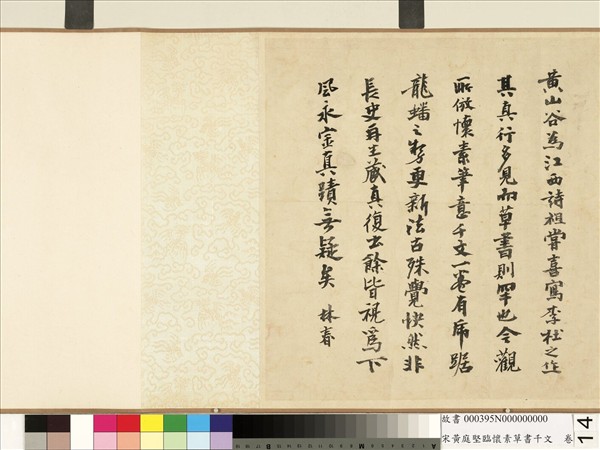 黃山谷為江西詩祖嘗喜寫李杜之作
其真行多見而草書則罕也今觀
所倣懷素筆意千文一卷有虎踞
龍蟠之勢更新法古殊覺快然非
長史再生藏真復出餘皆視為下
風永寶真蹟無疑矣 林春
故書 000395N000000000
宋黃庭堅臨懷素草書千文 卷
14